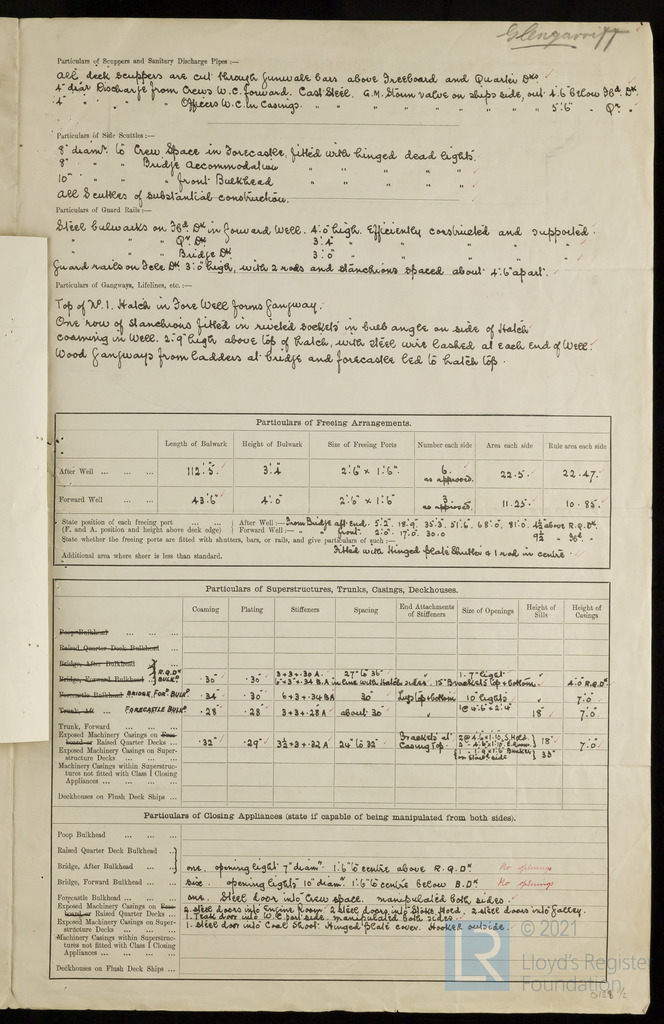 Glengarriff
Particulars of Scuppers and Sanitary Discharge Pipes :—
All deck scuppers are cut through gunwale bars above Freeboard and Quarter Dks
4" diar Discharge from Crews W.C. forward. Cast Steel. G.M. Storm valve on ships side, out 4'.6" below Fbd. Dk
4" " " " Officers W.C. in Casings. " " " " " " 5'.6" " Qr. "
Particulars of Side Scuttles :—
8" diamr. to Crew Space in Forecastle, fitted with hinged dead lights.
8" " " Bridge Accommodation " " " "
10" " " front Bulkhead " " " "
All Scuttles of substantial construction.
Particulars of Guard Rails :—
Steel bulwarks on Fbd. Dk in forward Well. 4'.0" high. Efficiently constructed and supported.
" " " Qr. Dk 3'.4" " " " "
" " " Bridge Dk. 3'.0" " " " "
Guard rails on Fcle Dk. 3'.0" high, with 2 rods and stanchions spaced about 4'.6" apart.
Particulars of Gangways, Lifelines, etc. :—
Top of No. 1. Hatch in Fore Well forms Gangway.
One row of stanchions fitted in riveted sockets in bulb angle on side of Hatch
coaming in Well. 2'.9" high above top of hatch, with steel wire lashed at each end of Well.
Wood Gangways from ladders at bridge and forecastle led to hatch top.
Particulars of Freeing Arrangements.
Length of Bulwark Height of Bulwark Size of Freeing Ports Number each side Area each side Rule area each side
After Well ... ... ... 112'.5" 3'.4" 2'.6" x 1'.6" 6. as approved. 22.5 22.47
Forward Well ... ... 43'.6" 4'.0" 2'.6" x 1'.6" 3 as approved. 11.25 10.85
State position of each freeing port ... ... After Well :— From Bridge aft end 5'.2" 18'.9" 35'.3" 51'.6" 68'.0" 81'.0" 4½ above R.Q.Dk.
(F. and A. position and height above deck edge) Forward Well :— " front. 2'.0" 17'.0" 30.0 9½ " Fbd. "
State whether the freeing ports are fitted with shutters, bars, or rails, and give particulars of such :—
Fitted with Hinged plate Shutter & 1 rod in centre
Additional area where sheer is less than standard.
Particulars of Superstructures, Trunks, Casings, Deckhouses.
Coaming Plating Stiffeners Spacing End Attachments of Stiffeners Size of Openings Height of Sills Height of Casings
Poop Bulkhead ... ... ...
Raised Quarter Deck Bulkhead
Bridge, After Bulkhead ...
Bridge, Forward Bulkhead ... R.Q.Dk BULKd. .30" .30" 3 x 3 x .30 A. 27" to 36" " 1. 7" light " 4'.0" R.Q.D.
6 x 3 x .34 B.A in line with Hatch sides. 15" Brackets top & bottom.
Forecastle Bulkhead BRIDGE FORd BULKd .34" .30" 6 x 3 x .34 BA 30" Lugs top & bottom 10" lights " 7'.0"
Trunk, Aft ... FORECASTLE BULKd. .28" .28" 3 x 3 x .28 A about 30" " 1 @ 4'.6" x 2'.4" 18" 7'.0"
Trunk, Forward ... ... ...
Exposed Machinery Casings on Freeboard or Raised Quarter Decks ... .32" .29" 3½ x 3 x .32 A 24" to 32" Brackets at Casing Top. 18" 7'.0"
Exposed Machinery Casings on Superstructure Decks ... ... ... 33"
Machinery Casings within Superstructures not fitted with Class I Closing Appliances ... ... ...
Deckhouses on Flush Deck Ships ...
Particulars of Closing Appliances (state if capable of being manipulated from both sides).
Poop Bulkhead ... ... ...
Raised Quarter Deck Bulkhead ..
Bridge, After Bulkhead ... one. opening light 7" diamr. 1'.6" to centre above R.Q.Dk No openings
Bridge, Forward Bulkhead ... Six. opening lights 10" diamr. 1'.6" to centre below B.Dk No openings
Forecastle Bulkhead ... ... one. Steel door into Crew space. manipulated both sides.
Exposed Machinery Casings on Freeboard or Raised Quarter Decks ... 2. steel doors into Engine Room 2 steel doors into Stoke Hold, 2 steel doors into galley.
1. Teak door into W.C. port side. manipulated both sides.
Exposed Machinery Casings on Superstructure Decks ... ... 1. Steel door into Coal Shoot. Hinged plate cover. Hooked outside.
Machinery Casings within Superstructures not fitted with Class I Closing Appliances ... ... ...
Deckhouses on Flush Deck Ships ...
© 2021
LR
Lloyd's Register
Foundation